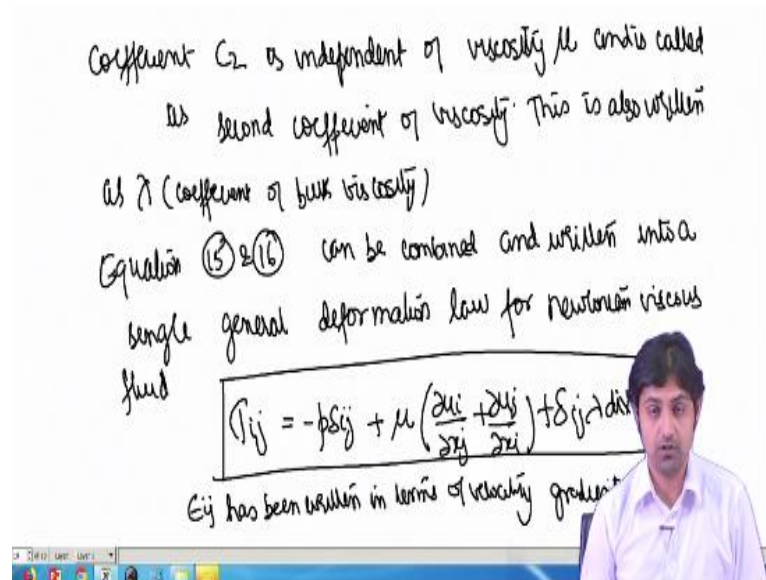 Coefficient C₂ is independent of viscosity μ and is called
as second coefficient of viscosity. This is also written
as λ (coefficient of bulk viscosity)
Equation ⑮ & ⑯ can be combined and written into a
single general deformation law for newtonian viscous
fluid
σij = -pδij + μ (∂ui/∂xj + ∂uj/∂xi) + δij λ div
Eij has been written in terms of velocity